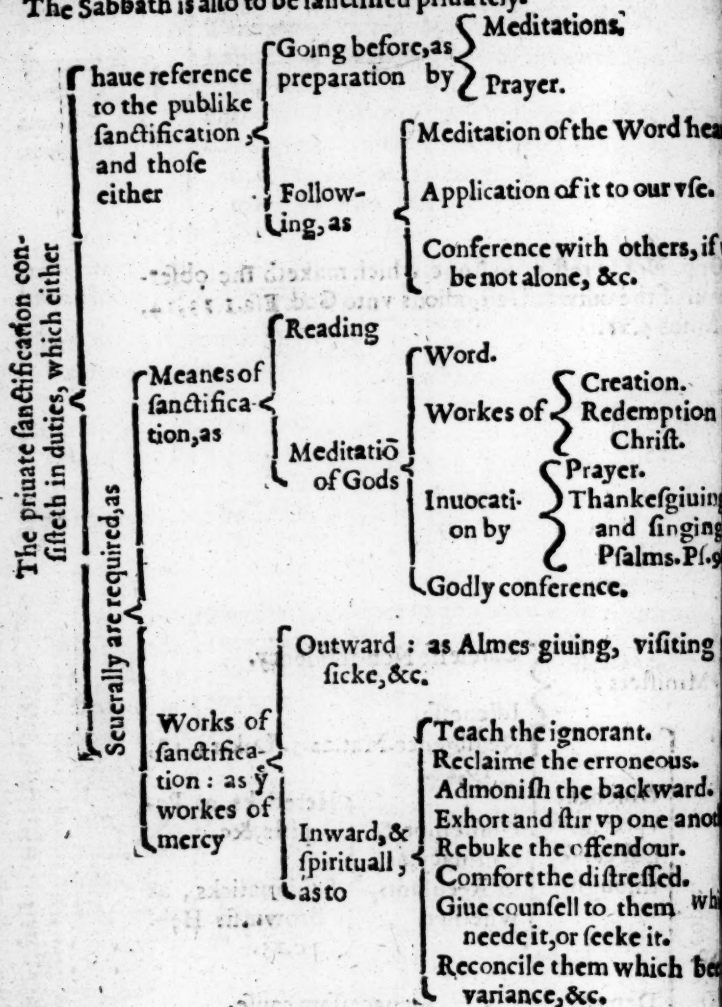 The Sabbath is also to be sanctified priuately.
The priuate sanctification con-
sisteth in duties, which either
haue reference
to the publike
sanctification,
and those
either
Going before, as
preparation by
Meditations.
Prayer.
Follow-
ing, as
Meditation of the Word hea
Application of it to our vse.
Conference with others, if
be not alone, &c.
Seuerally are required, as
Meanes of
sanctifica-
tion, as
Reading
Meditatiō
of Gods
Word.
Workes of
Creation.
Redemption
Christ.
Inuocati-
on by
Prayer.
Thankesgiuing
and singing
Psalms. Ps.9
Godly conference.
Works of
sanctifica-
tion : as yͤ
workes of
mercy
Outward : as Almes giuing, visiting
sicke, &c.
Inward, &
spirituall,
as to
Teach the ignorant.
Reclaime the erroneous.
Admonish the backward.
Exhort and stir vp one anot
Rebuke the offendour.
Comfort the distressed.
Giue counsell to them whi
neede it, or seeke it.
Reconcile them which bee
variance, &c.